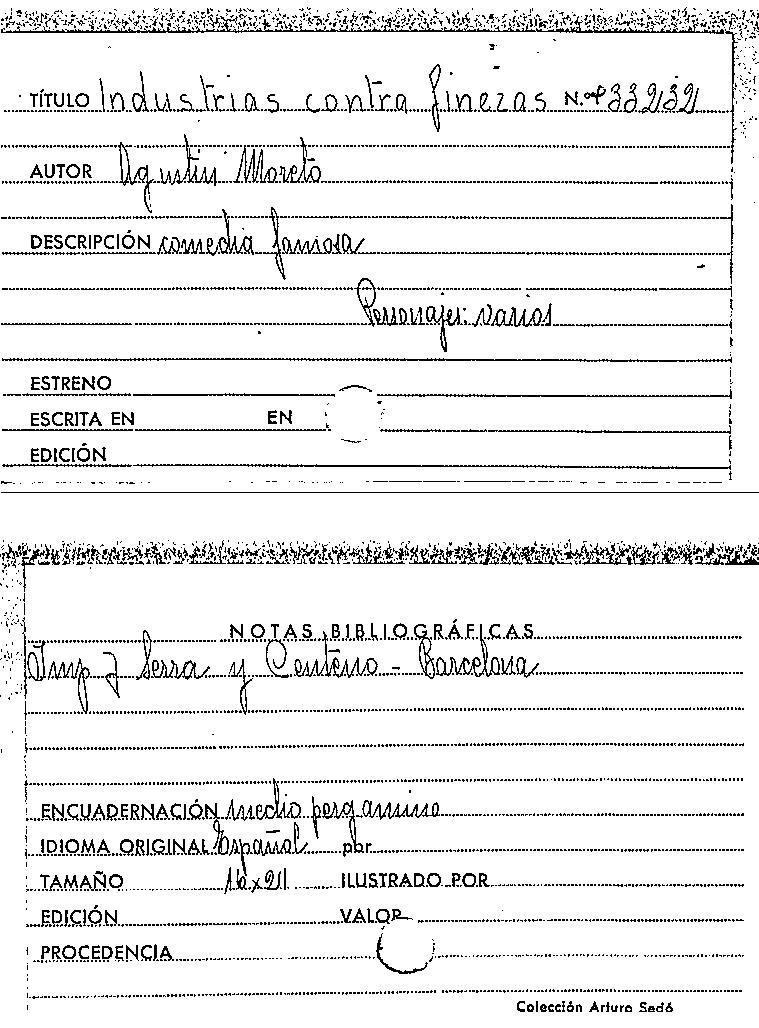 TÍTULO Industrias contra finezas N.º 33232
AUTOR Agustín Moreto
DESCRIPCIÓN comedia famosa
Personajes: varios
ESTRENO
ESCRITA EN EN
EDICIÓN
NOTAS BIBLIOGRÁFICAS
Imp J Serra y Centeno - Barcelona
ENCUADERNACIÓN medio pergamino
IDIOMA ORIGINAL Español por
TAMAÑO 16x21 ILUSTRADO POR
EDICIÓN VALOR
PROCEDENCIA
Colección Arturo Sedó